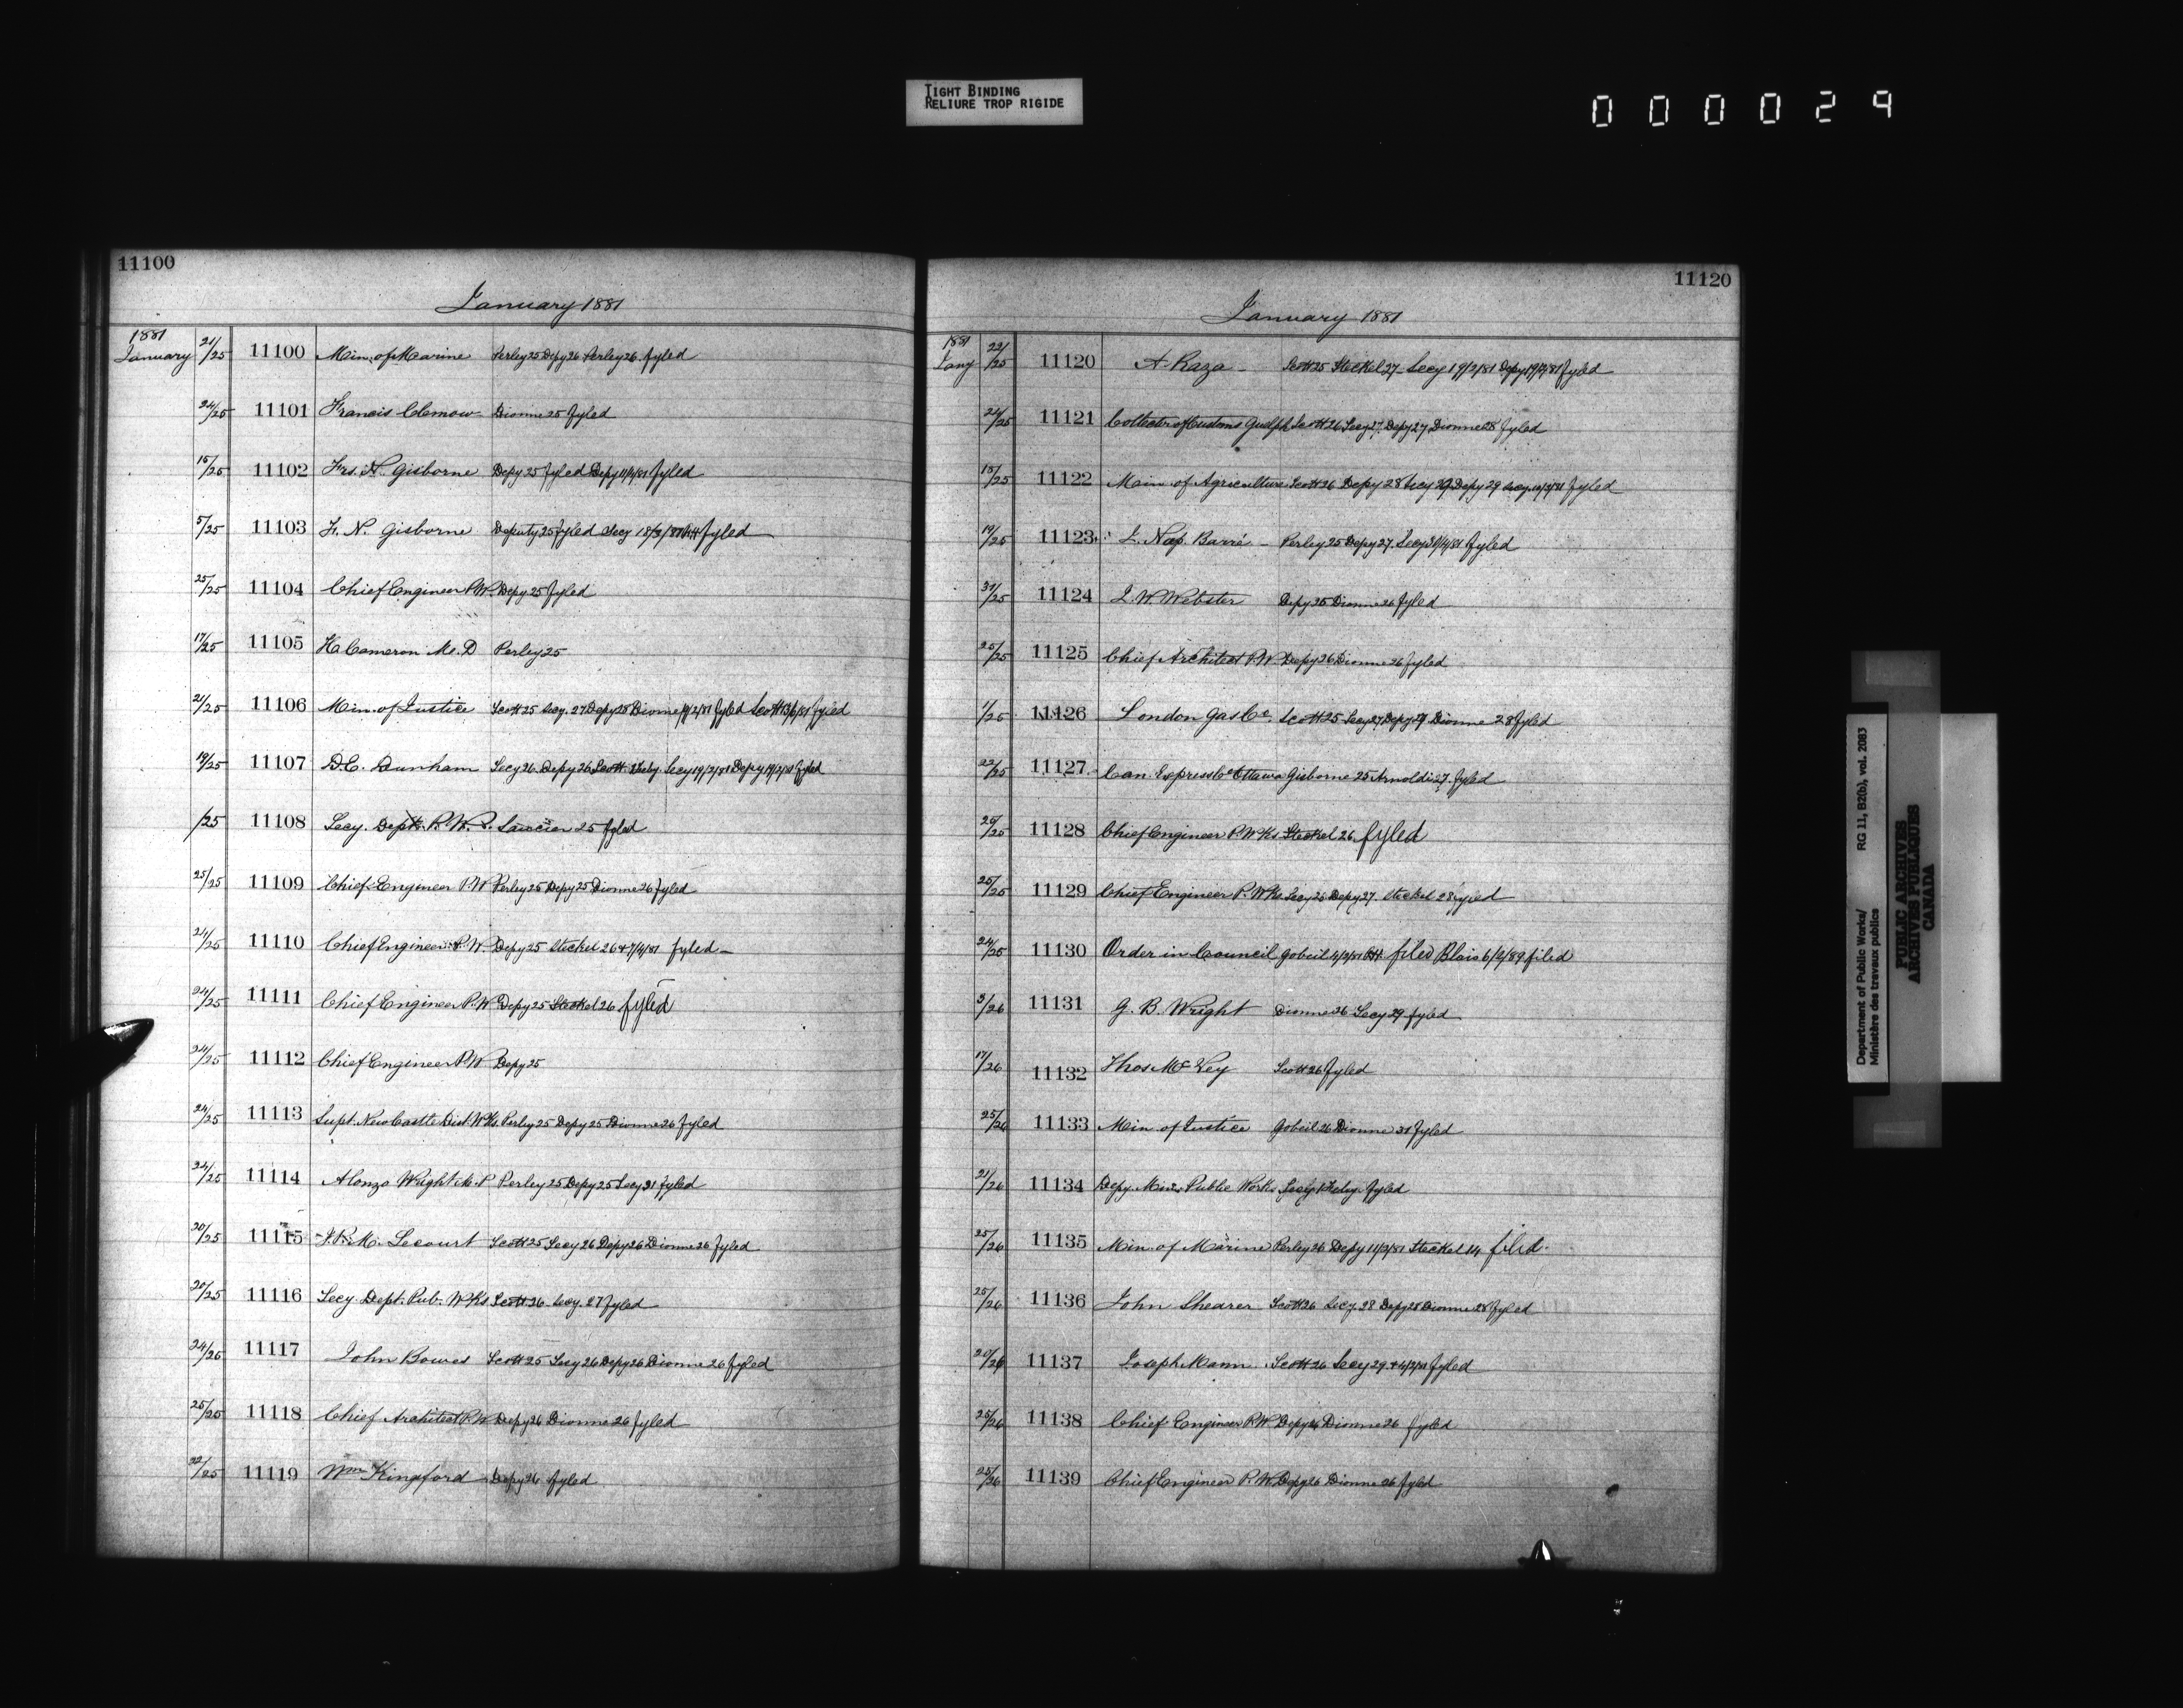 TIGHT BINDING
RELIURE TROP RIGIDE
000029
11100
January 1881
1881
January 21/25 11100 Min. of Marine Perley 25 Depy 26 Perley 26. fyled
24/25 11101 Francis Clemow Dionne 25 fyled
15/25 11102 Frs. N. Gisborne Depy 25 fyled Depy 11/4/81 fyled
5/25 11103 F. N. Gisborne Deputy 25 fyled Secy fyled
25/25 11104 Chief Engineer P.W. Depy 25 fyled
17/25 11105 H Cameron M.D Perley 25
21/25 11106 Min. of Justice Scott 25 Secy. 27 Depy 28 Dionne fyled Scott fyled
19/25 11107 D.C. Dunham Secy 26 Depy 26 Scott Secy 19/2/81 Depy 19/2/81 fyled
/25 11108 Secy. Dept. P. W. 25 fyled
25/25 11109 Chief Engineer P.W Perley 25 Depy 25 Dionne 26 fyled
21/25 11110 Chief Engineer P.W. Depy 25 Steckel 26 & 7/4/81 fyled
24/25 11111 Chief Engineer P.W Depy 25 Steckel 26 fyled
24/25 11112 Chief Engineer P.W Depy 25
24/25 11113 Supt. New Castle Dist. Wks. Perley 25 Depy 25 Dionne 26 fyled
24/25 11114 Alonzo Wright M.P Perley 25 Depy 25 Secy 31 fyled
20/25 11115 J.P.M. Lecourt Scott 25 Secy 26 Depy 26 Dionne 26 fyled
20/25 11116 Secy Dept. Pub. Wks Scott 26 Secy. 27 fyled
24/25 11117 John Bowes Scott 25 Secy 26 Depy 26 Dionne 26 fyled
25/25 11118 Chief Architect P.W Depy 26 Dionne 26 fyled
22/25 11119 Wm Kingsford Depy 26 fyled
11120
January 1881
1881
Jany 22/25 11120 A. Raza Scott 25 Steckel 27 Secy 19/2/81 Depy 19/2/81 fyled
24/25 11121 Collector of Customs Guelph Scott 26 Secy 27 Depy 27 Dionne 28 fyled
18/25 11122 Min. of Agriculture Scott 26 Depy 28 Secy 29 Depy 29 Secy fyled
19/25 11123 L. Nap. Barré Perley 25 Depy 27. Secy fyled
31/25 11124 L. W. Webster Depy 25 Dionne 26 fyled
25/25 11125 Chief Architect P.W. Depy 26 Dionne 26 fyled
1/25 11126 London Gas Co. Scott 25 Secy 27 Depy 27 Dionne 28 fyled
22/25 11127 Can. Express Co Ottawa Gisborne 25 Arnoldi 27. fyled
20/25 11128 Chief Engineer P. Wks Steckel 26 fyled
25/25 11129 Chief Engineer P. Wks Secy 25 Depy 27. Steckel 28 fyled
24/25 11130 Order in Council Gobeil filed Blais 6/2/89 filed
3/26 11131 G. B. Wright Dionne 26 Secy 29 fyled
17/26 11132 Thos McKey Scott 26 fyled
25/26 11133 Min of Justice Gobeil 26 Dionne 31 fyled
21/26 11134 Depy. Min. Public Works Secy 1 Feby. fyled
25/26 11135 Min. of Marine Perley 26 Depy 11/2/81 Steckel 14 filed.
25/26 11136 John Shearer Scott 26 Secy. 28 Depy 28 Dionne 28 fyled
20/26 11137 Joseph Mann Scott 26 Secy 29 & 4/2/81 fyled
25/26 11138 Chief Engineer P.W Depy 26 Dionne 26 fyled
25/26 11139 Chief Engineer P.W. Depy 26 Dionne 26 fyled
Department of Public Works/
Ministère des travaux publics
RG 11, B2(b), vol. 2083
PUBLIC ARCHIVES
ARCHIVES PUBLIQUES
CANADA